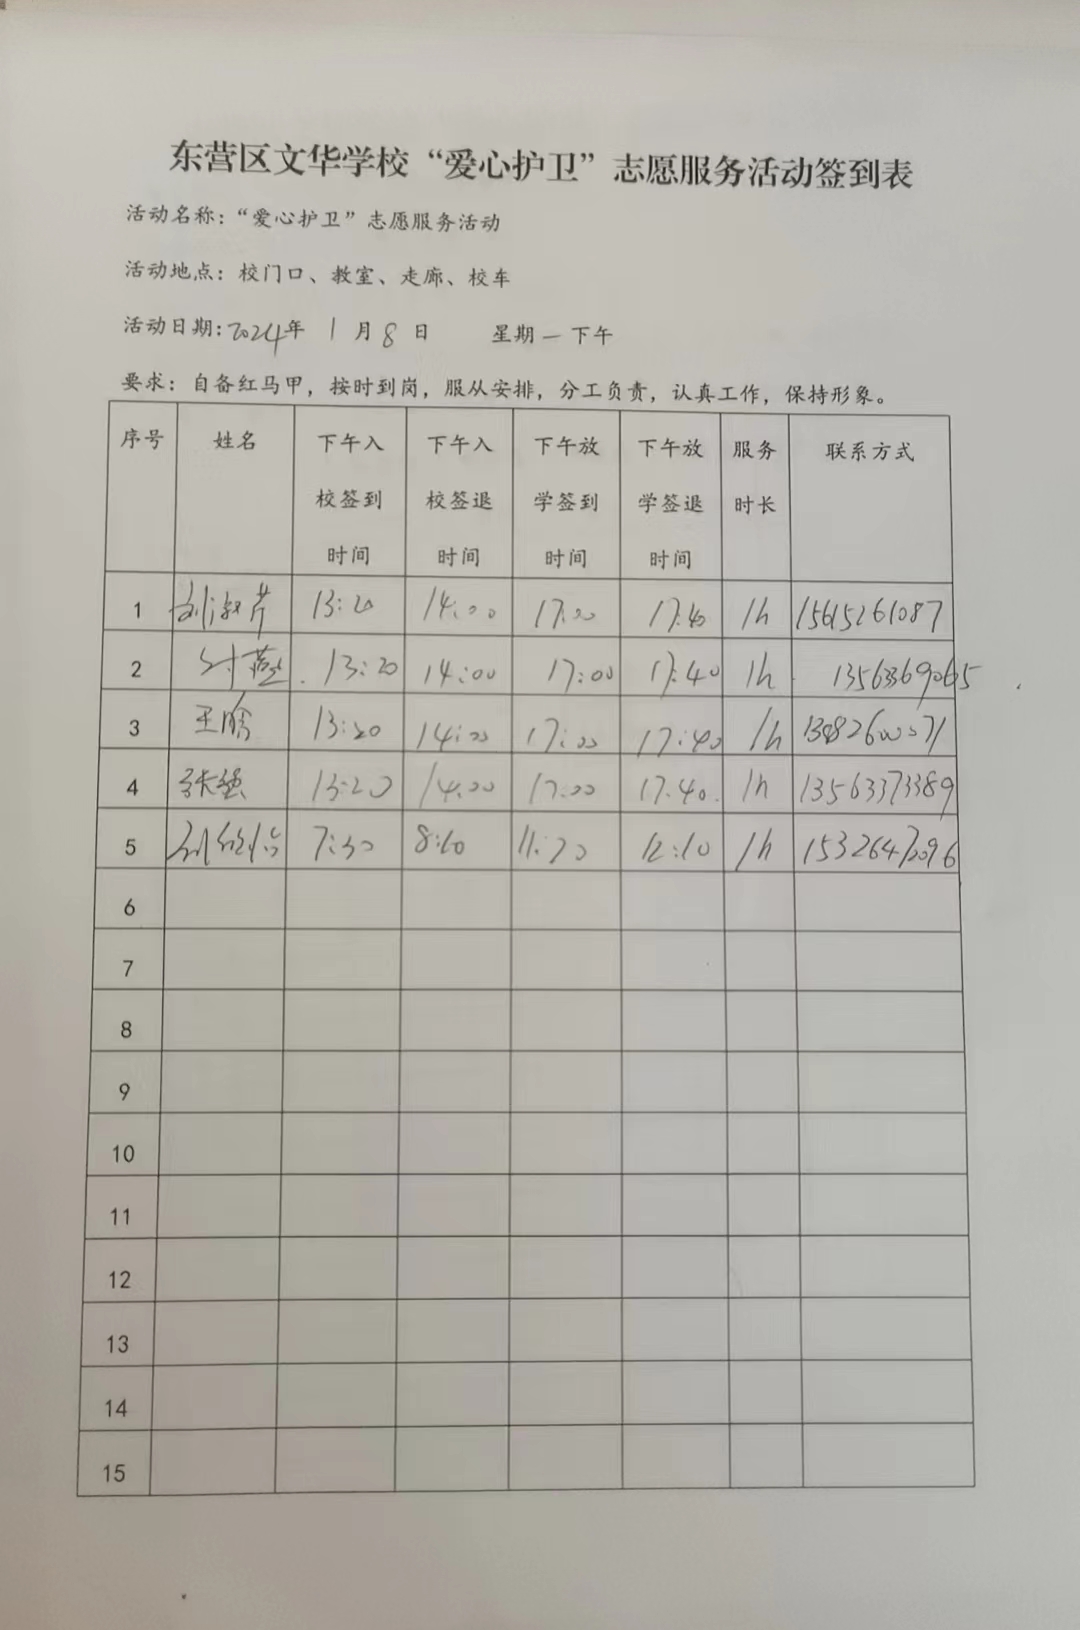 东营区文华学校“爱心护卫”志愿服务活动签到表
活动名称：“爱心护卫”志愿服务活动
活动地点：校门口、教室、走廊、校车
活动日期：2024年 1月8日 星期一下午
要求：自备红马甲，按时到岗，服从安排，分工负责，认真工作，保持形象。
序号 姓名 下午入校签到时间 下午入校签退时间 下午放学签到时间 下午放学签退时间 服务时长 联系方式
1 刘淑芹 13:20 14:00 17:00 17:40 1h 15615261087
2 13:20 14:00 17:00 17:40 1h 13563369065
3 王晗 13:20 14:00 17:00 17:40 1h
4 张强 13:20 14:00 17:00 17:40 1h 13563373389
5 7:30 8:10 11:30 12:10 1h
6
7
8
9
10
11
12
13
14
15